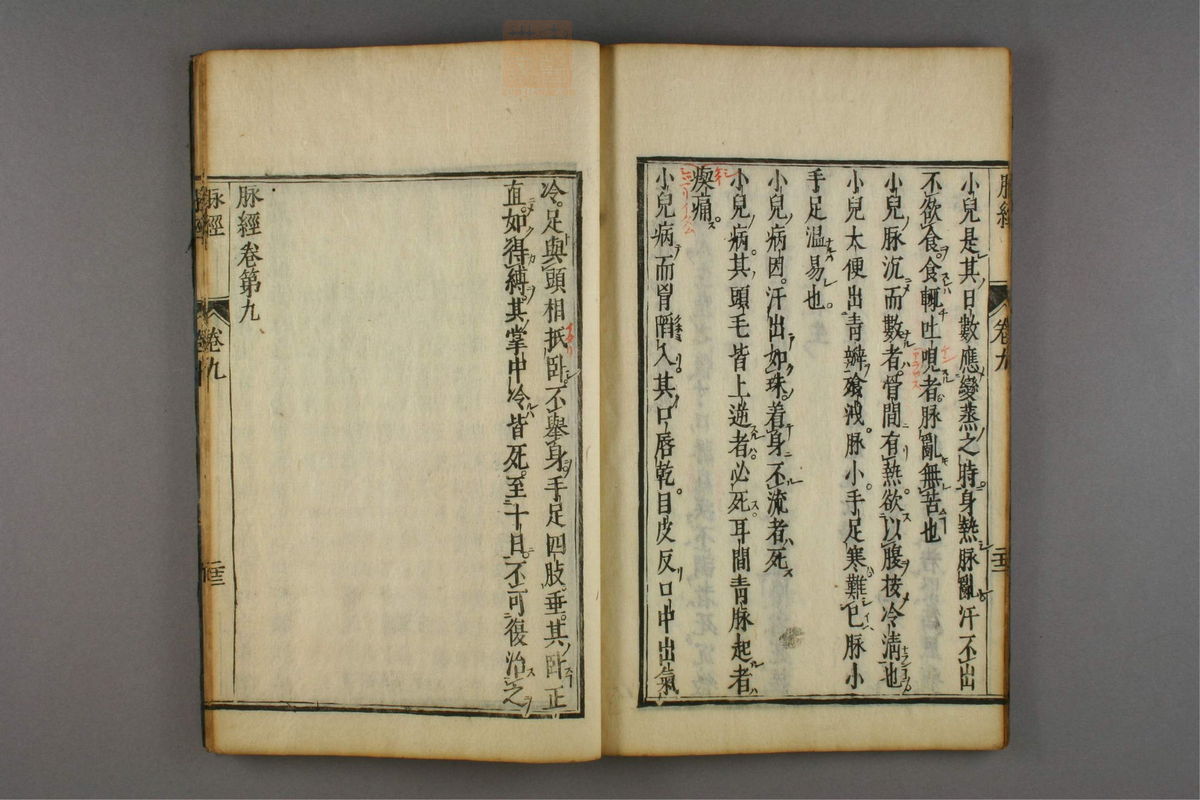 小兒是其日數應變蒸之時身熱脉亂汗不出
不欲食食輙吐哯者脉亂無苦也
小兒脉沉而數者骨間有熱欲以腹按冷清也
小兒大便出青瓣飱泄脉小手足寒難已脉小
手足温易也
小兒病因汗出如珠着身不流者死
小兒病其頭毛皆上逆者必死耳間青脉起者
瘈痛
小兒病而胷䧟入其口唇乾目皮反口中出氣
冷足與頭相抵卧不舉身手足四肢垂其卧正
直如得縛其掌中冷皆死至十日不可復治之
脉經卷第九
脉經
卷九